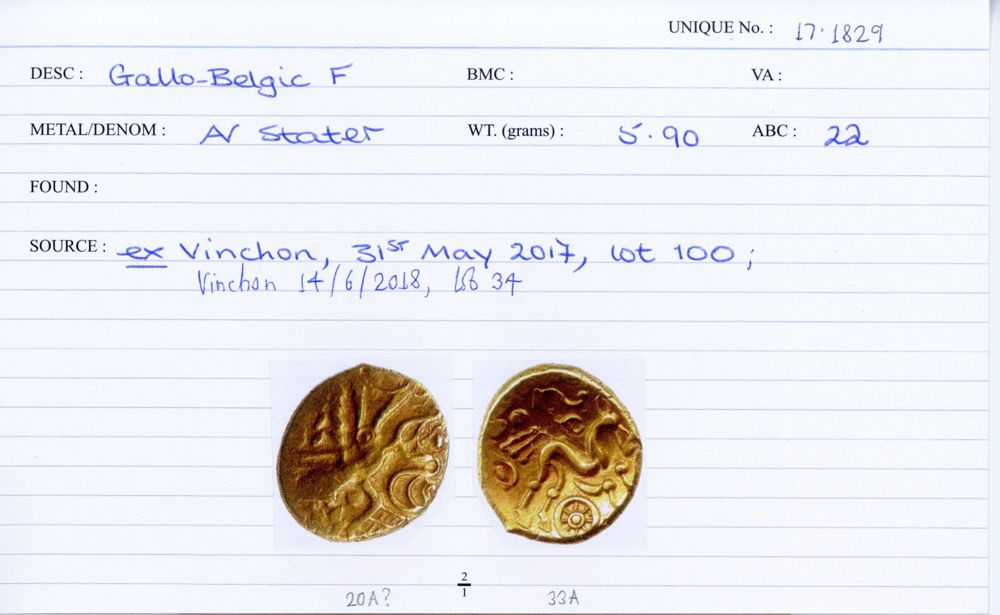 UNIQUE No. : 17.1829
DESC : Gallo-Belgic F BMC : VA :
METAL/DENOM : AV Stater WT. (grams) : 5.90 ABC : 22
FOUND :
SOURCE : ex Vinchon, 31st May 2017, lot 100 ;
Vinchon 14/6/2018, lot 34
2
1
20A? 33A